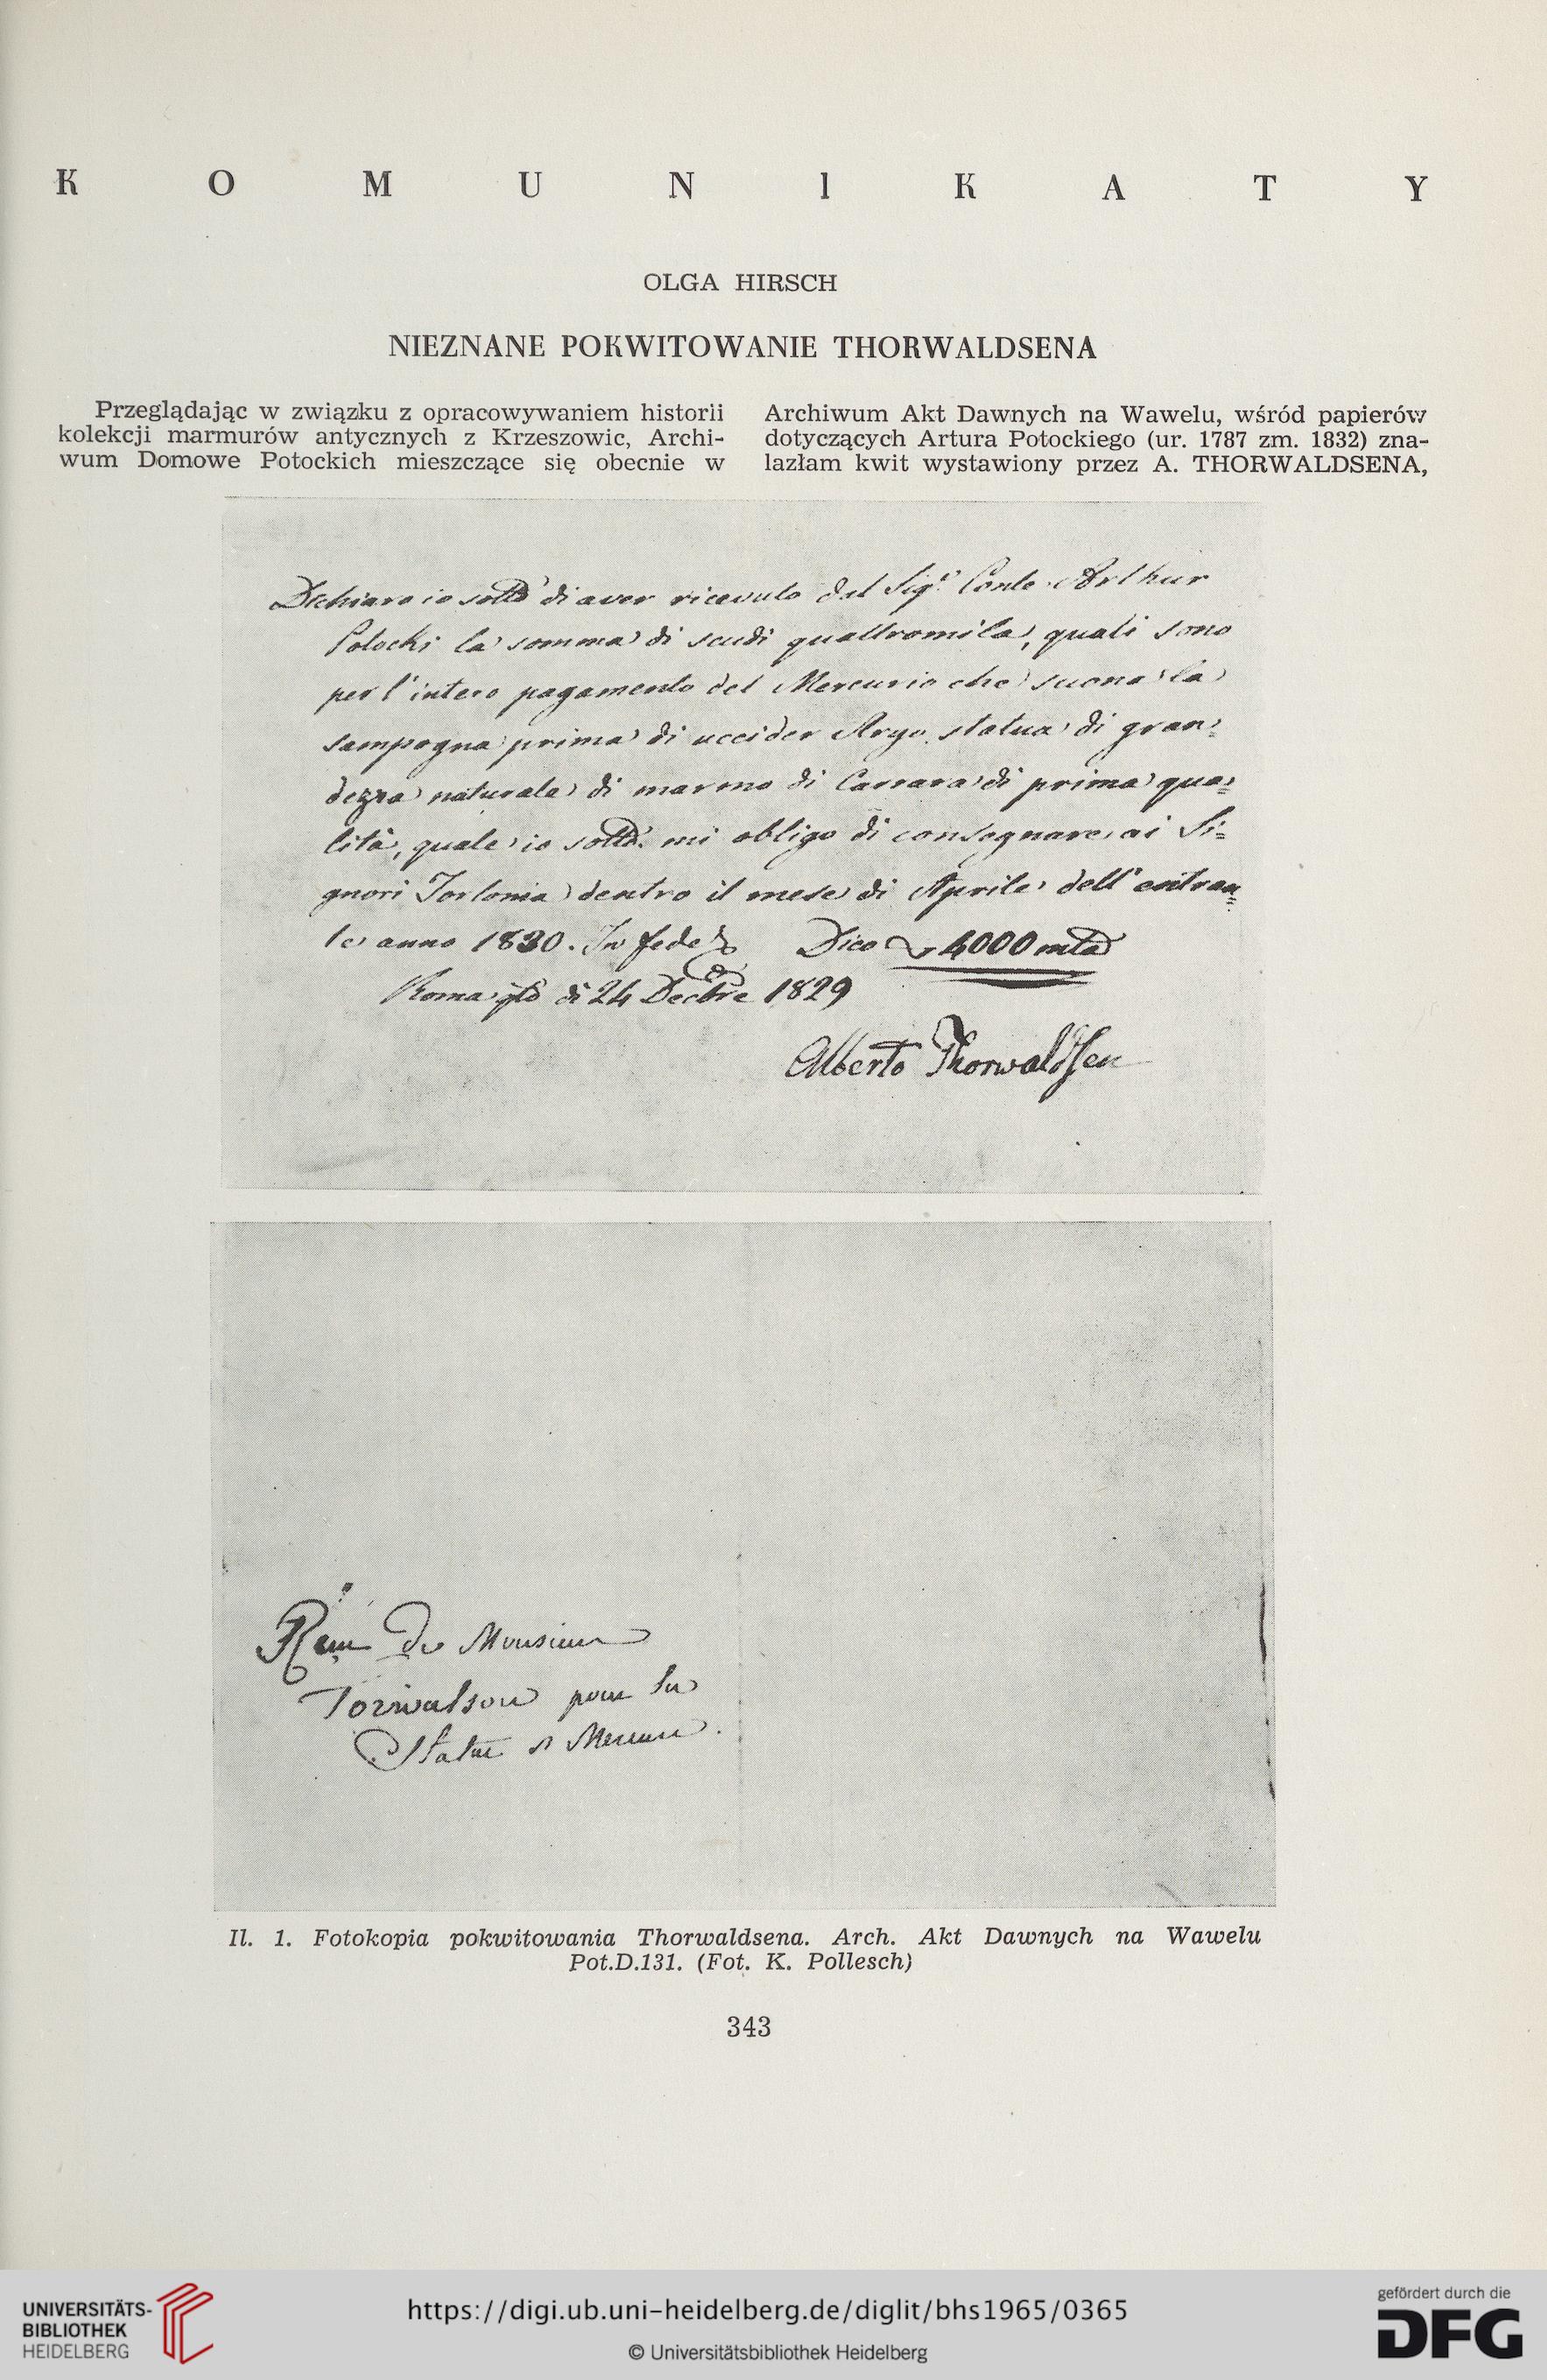 KOMUNIKATY
OLGA HIRSCH
NIEZNANE POKWITOWANIE THORWALDSENA
Przeglądając w związku z opracowywaniem historii
kolekcji marmurów antycznych z Krzeszowic, Archi-
wum Domowe Potockich mieszczące się obecnie w
Archiwum Akt Dawnych na Wawelu, wśród papierów
dotyczących Artura Potockiego (ur. 1787 zm. 1832) zna-
lazłam kwit wystawiony przez A. THORWALDSENA,
Dichiaro io sotto di aver ricevuto dal Sigr Conte Arthur
Potocki la somma di scudi quattromila, quali sono
per l'intero pagamento del Mercurio che suona la
sampogna prima di uccider Argo, statua di gran=
dezza naturale di marmo di Carrara di prima qua=
lità, quale io sotto. mi obligo di consegnare ai Si=
gnori Torlonia dentro il mese di Aprile dell' entran=
te anno 1830. In fede Dico 4000 mta
Roma qto di 24 Decbre 1829
Alberto Thorwaldsen
Reçu De Monsieur
Torwalson pour la
Statue d Mercure.
Il. 1. Fotokopia pokwitowania Thorwaldsena. Arch. Akt Dawnych na Wawelu
Pot.D.131. (Fot. K. Pollesch)
343
UNIVERSITÄTS-
BIBLIOTHEK
HEIDELBERG
https://digi.ub.uni-heidelberg.de/diglit/bhs1965/0365
© Universitätsbibliothek Heidelberg
gefördert durch die
DFG